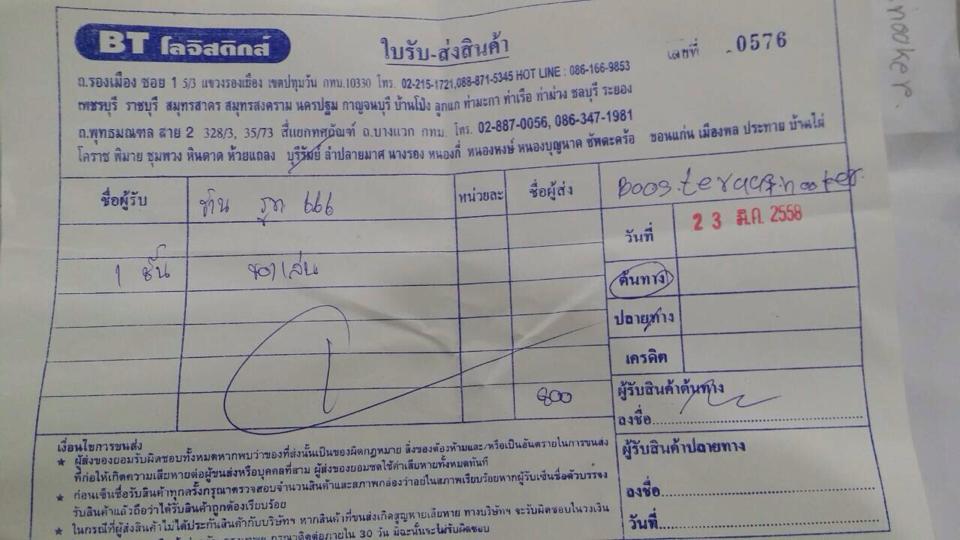 BT โลจิสติกส์
ใบรับ-ส่งสินค้า
เลขที่ 0576
ถ.รองเมือง ซอย 1 5/3 แขวงรองเมือง เขตปทุมวัน กทม.10330 โทร. 02-215-1721,088-871-5345 HOT LINE : 086-166-9853
เพชรบุรี ราชบุรี สมุทรสาคร สมุทรสงคราม นครปฐม กาญจนบุรี บ้านโป่ง ลูกแก ท่ามะกา ท่าเรือ ท่าม่วง ชลบุรี ระยอง
ถ.พุทธมณฑล สาย 2 328/3, 35/73 สี่แยกทศกัณฑ์ ถ.บางแวก กทม. โทร. 02-887-0056, 086-347-1981
โคราช พิมาย ชุมพวง หินดาด ห้วยแถลง บุรีรัมย์ ลำปลายมาศ นางรอง หนองกี่ หนองหงษ์ หนองบุญนาค ขอนแก่น เมืองพล ประทาย บ้านไผ่
ชื่อผู้รับ
666
หน่วยละ
ชื่อผู้ส่ง
วันที่ 23 มี.ค. 2558
1 ชิ้น
ต้นทาง
ปลายทาง
เครดิต
800
ผู้รับสินค้าต้นทาง
ลงชื่อ
ผู้รับสินค้าปลายทาง
ลงชื่อ
วันที่
เงื่อนไขการขนส่ง
★ ผู้ส่งของยอมรับผิดชอบทั้งหมดหากพบว่าของที่ส่งนั้นเป็นของผิดกฎหมาย สิ่งของต้องห้ามและ/หรือเป็นอันตรายในการขนส่ง
ที่ก่อให้เกิดความเสียหายต่อผู้ขนส่งหรือบุคคลที่สาม ผู้ส่งของยอมชดใช้ค่าเสียหายทั้งหมดทันที
★ ก่อนเซ็นชื่อรับสินค้าทุกครั้งกรุณาตรวจสอบจำนวนสินค้าและสภาพกล่องว่าอยู่ในสภาพเรียบร้อยหากผู้รับเซ็นชื่อตัวบรรจง
รับสินค้าแล้วถือว่าได้รับสินค้าถูกต้องเรียบร้อย
★ ในกรณีที่ผู้ส่งสินค้าไม่ได้ประกันสินค้ากับบริษัทฯ หากสินค้าที่ขนส่งเกิดสูญหายเสียหาย ทางบริษัทฯ จะรับผิดชอบในวงเงิน
ภายใน 30 วัน มิฉะนั้นจะไม่รับผิดชอบ